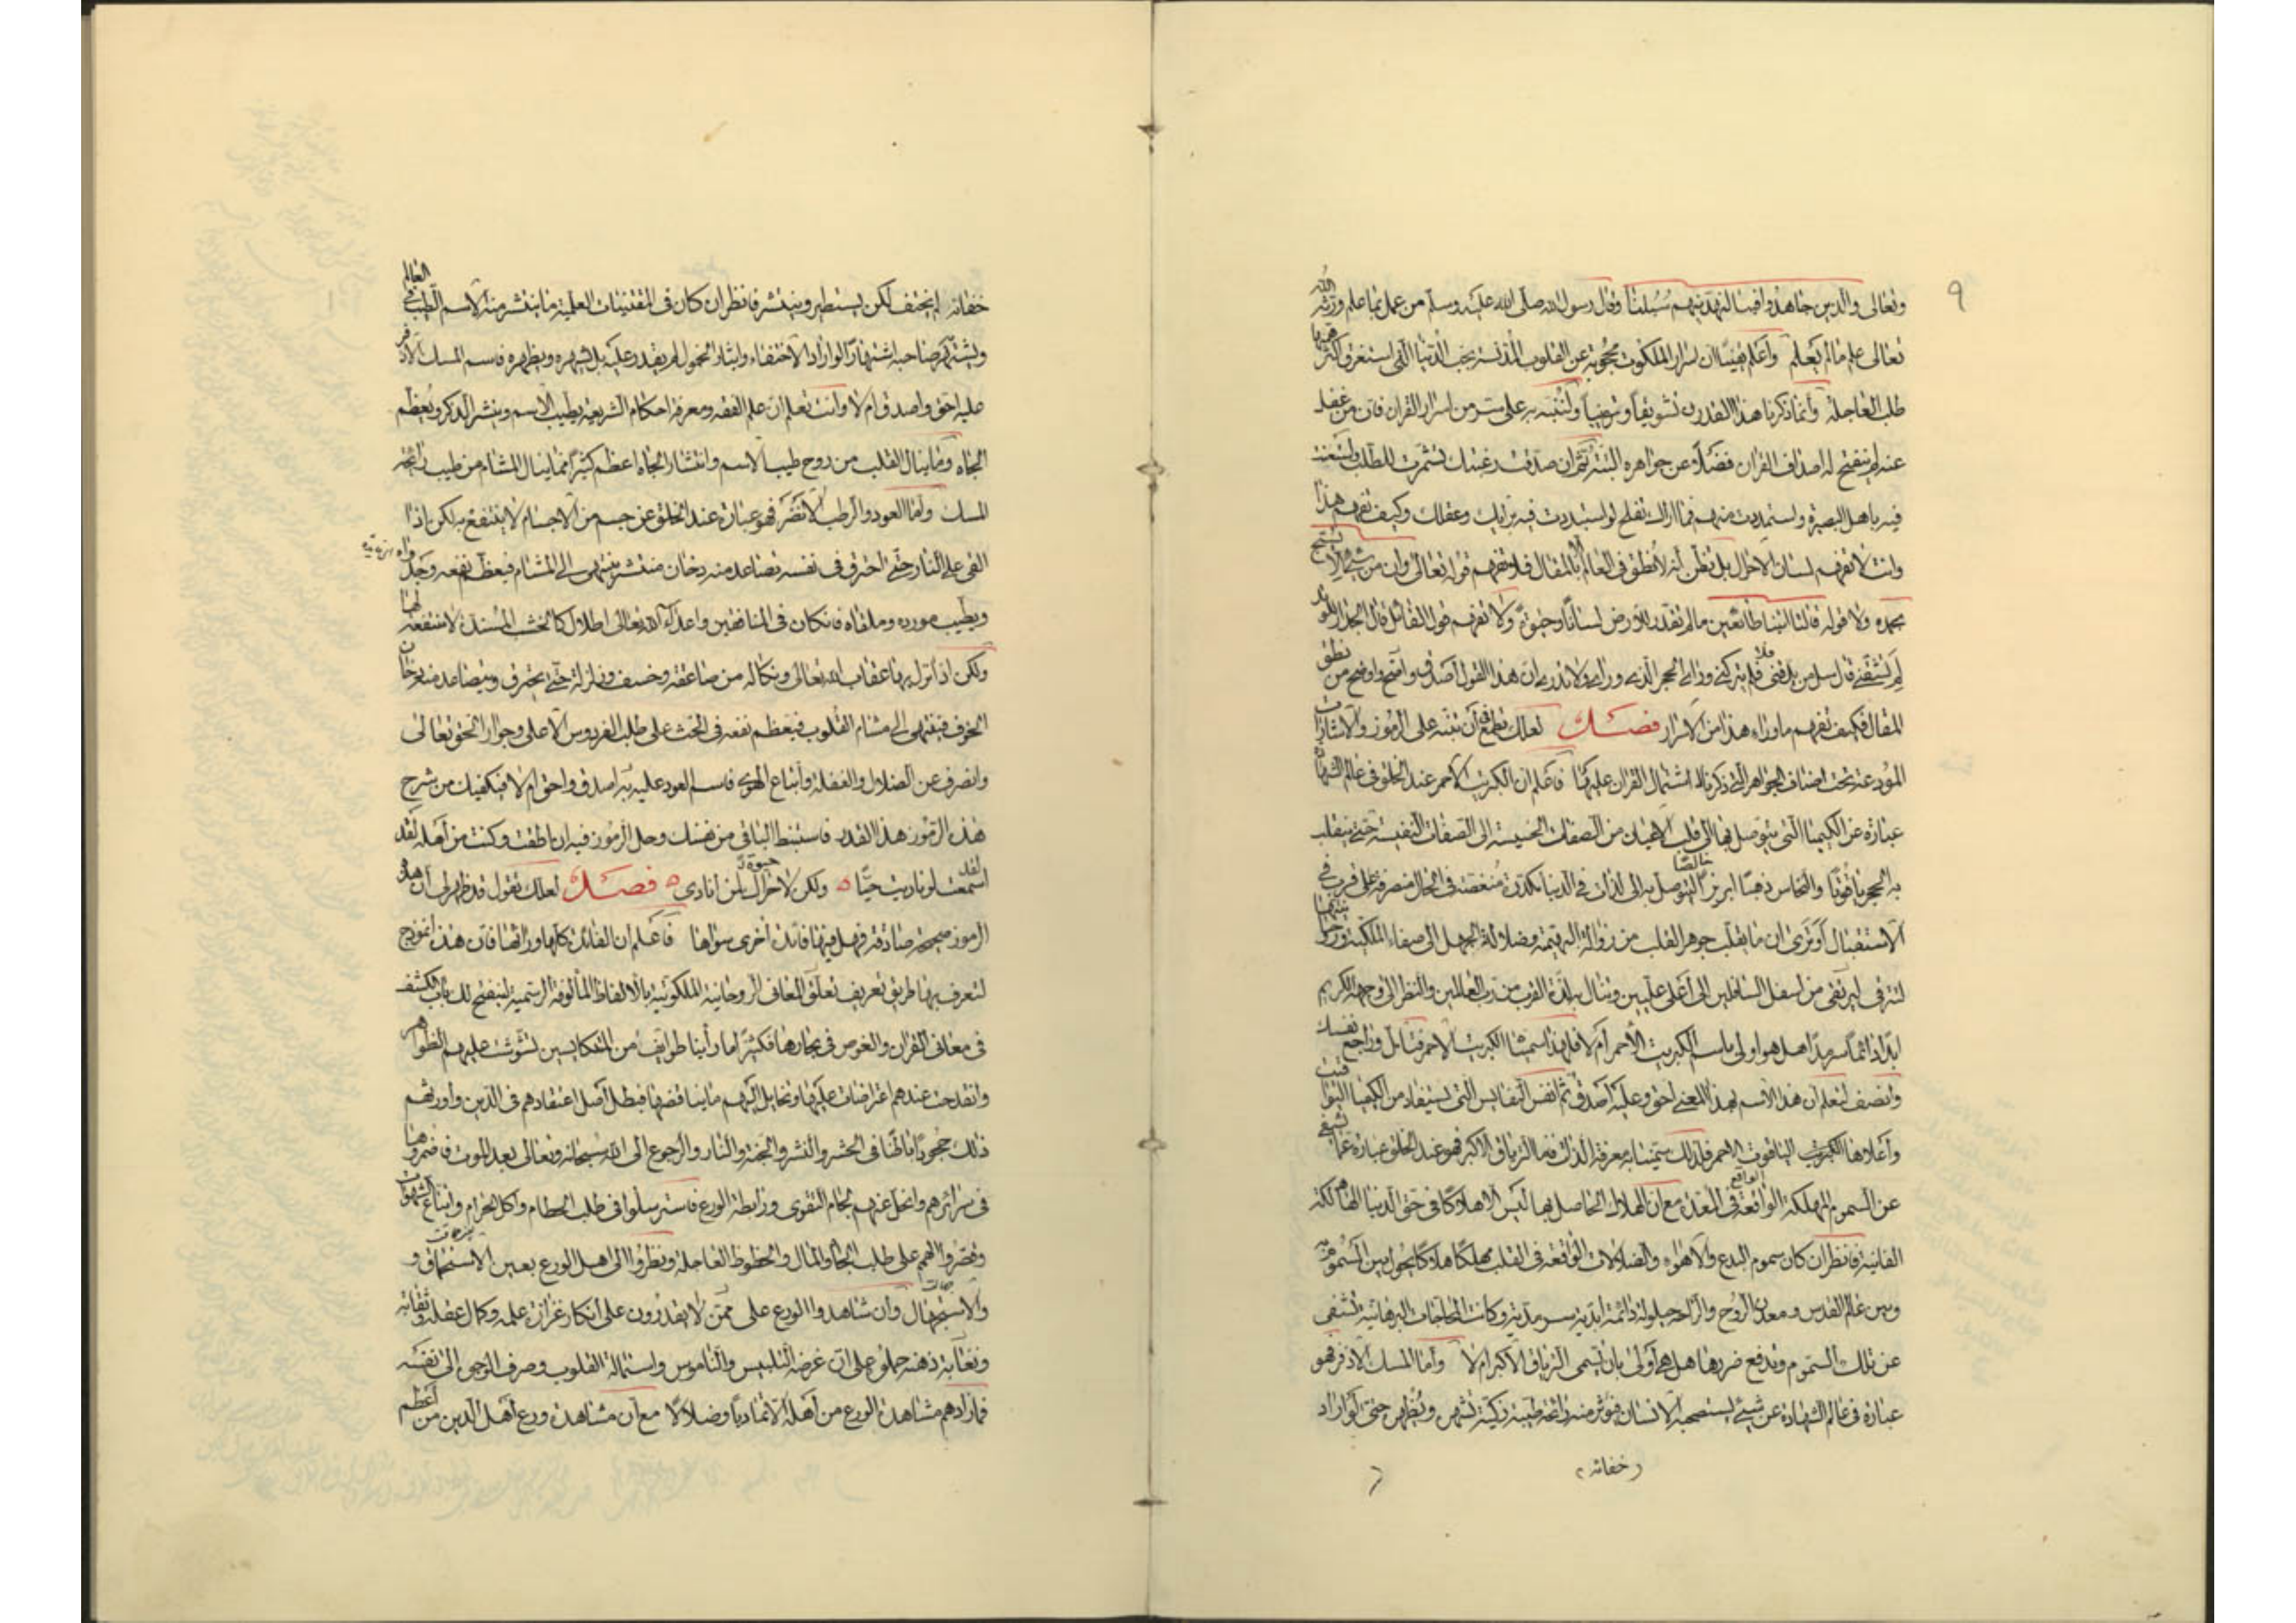 وتعالى والذين جاهدوا فينا لنهدينهم سبلنا وقال رسول الله صلى الله عليه وسلم من عمل بما علم ورثه الله
تعالى علم ما لم يعلم واعلم يقينا ان اسرار الملكوت محجوبة عن القلوب المدنسة بحب الدنيا التي استغرق اكثر همها
طلب العاجلة وانما ذكرنا هذا القدر تشويقا وترغيبا ولننبه به على سر من اسرار القران فان من غفل
عنه لم ينفتح له اصداف القران فضلا عن جواهره البتة ثم ان صدقت رغبتك تشمرت للطلب واستعنت
فيه باهل البصيرة واستمددت منهم فما اراك تفلح لو استبددت فيه برايك وعقلك وكيف تفهم هذا
وانت لا تفهم لسان الاحوال بل تظن انه لا نطق في العالم الا بالمقال فلم تفهم قوله تعالى وان من شيء الا يسبح
بحمده ولا قوله قالتا اتينا طائعين ما لم تقدر للارض لسانا وحيوة ولا تفهم قول القائل قال الجدار للوتد
لم تشقني قال سل من يدقني فلم يتركني ورائي الحجر الذي ورائي ولا تدري ان هذا القول صدق واصح واوضح من نطق
المقال فكيف تفهم ما وراء هذا من الاسرار فصل لعلك تطمع في ان تنبه على الرموز والاشارات
المودعة تحت اصناف الجواهر التي ذكرنا اشتمال القران عليها فاعلم ان الكبريت الاحمر عند الخلق في عالم الشهادة
عبارة عن الكيميا التي يتوصل بها الى قلب الاعيان من الصفات الخسيسة الى الصفات النفيسة حتى ينقلب
به الحجر ياقوتا والنحاس ذهبا ابريزا خالصا ليتوصل به الى لذات في الدنيا مكدرة منغصة في الحال منصرمة على قرب في
الاستقبال افترى ان ما يقلب جوهر القلب من رذالة البهيمة وضلالة الجهل الى صفاء الملكية وروحانيتها
لترقى من اسفل السافلين الى اعلى عليين وتنال به لذة القرب من رب العالمين والنظر الى وجهه الكريم
ابدا دائما سرمدا هل هو اولى باسم الكبريت الاحمر ام لا فلهذا سميناه الكبريت الاحمر فتامل وراجع نفسك
وانصف لتعلم ان هذا الاسم بهذا المعنى احق وعليه اصدق ثم انفس النفايس التي تستفاد من الكيميا اليواقيت
واعلاها الياقوت الاحمر فلذلك سمينا به معرفة الذات فاما الترياق الاكبر فهو عند الخلق عبارة عما يشفى
عن السموم المهلكة الواقعة في المعدة مع ان الهلاك الحاصل بها ليس الا هلاكا في حق الدنيا الهالكة
الفانية فانظر ان كان سموم البدع والاهواء والضلالات الواقعة في القلب مهلكا هلاكا يحول بين المسموم
وبين عالم القدس ومعدن الروح والراحة حيلولة دائمة ابدية سرمدية وكانت المحاجات البرهانية تشفى
عن تلك السموم وتدفع ضررها هل هي اولى بان تسمى الترياق الاكبر ام لا واما المسك الاذفر فهو
عبارة في عالم الشهادة عن شيء يستصحبه الانسان فيثور منه رائحة طيبة زكية تشهره وتظهره حتى لو اراد
خفائه
خفائه لم يختف لكن يستطير وينتشر فانظر ان كان في المقتنيات العلمية ما ينتشر منه الاسم الطيب في العالم
ويشتهر صاحبه اشتهارا لو اراد الاختفاء وايثار الخمول لم يقدر عليه بل يشهره ويظهره فاسم المسك الاذفر
عليه احق واصدق ام لا وانت تعلم ان علم الفقه ومعرفة احكام الشريعة يطيب الاسم وينشر الذكر ويعظم
الجاه وما ينال القلب من روح طيب الاسم وانتشار الجاه اعظم كثيرا مما ينال المشام من طيب رائحة
المسك واما العود الرطب الانضر فهو عبارة عند الخلق عن جسم من الاجسام لا ينتفع به لكن اذا
القى على النار حتى احترق في نفسه تصاعد منه دخان منتشر ينتهى الى المشام فيعظم نفعه وجدواه
ويطيب مورده وملقاه فان كان في المنافقين واعداء الله تعالى اطلال كالخشب المسندة لا منفعة لها
ولكن اذا نزل بها عقاب الله تعالى ونكاله من صاعقة وخسف وزلزلة حتى يحترق ويتصاعد منه دخان
الخوف فينتهى الى مشام القلوب فيعظم نفعه في الحث على طلب الفردوس الاعلى وجوار الحق تعالى
وانصرف عن الضلال والغفلة واتباع الهوى فاسم العود عليه به اصدق واحق ام لا فيكفيك من شرح
هذه الرموز هذا القدر فاستنبط الباقي من نفسك وحل الرموز فيه ان اطقت وكنت من اهله لقد
اسمعت لو ناديت حيا ولكن لا حيوة لمن انادي فصل لعلك تقول قد ظهر لي ان هذه
الرموز صحيحة صادقة فهل فيها فائدة اخرى سواها فاعلم ان الفائدة كلها وراءها فان هذه انموذج
لتعرف بها طريق تعريف تعلق المعاني الروحانية الملكوتية بالالفاظ المألوفة الرسمية لينفتح لك باب الكشف
في معاني القران والغوص في بحارها فكثيرا ما رأينا طوايف من المتكايسين تشوشت عليهم الظواهر
وانقدحت عندهم اعتراضات عليها وتخايل اليهم ما يناقضها فبطل اصل اعتقادهم في الدين واورثهم
ذلك جحودا باطنا في الحشر والنشر والجنة والنار والرجوع الى الله سبحانه وتعالى بعد الموت فاضمروها
في سرائرهم وانحل عنهم لجام التقوى ورابطة الورع فاسترسلوا في طلب الحطام واكل الحرام واتباع الشهوات
وقصروا الهمم على طلب الجاه والمال والحظوظ العاجلة ونظروا الى اهل الورع بعين الاستحقار و
والاستجهال وان شاهدوا الورع على ممن لا يقدرون على انكار غزارة علمه وكمال عقله وثقابة
وثقابة ذهنه حملوه على ان غرضه التلبيس والناموس واستمالة القلوب وصرف الوجوه الى نفسه
فما زادهم مشاهدة الورع من اهله الا تماديا وضلالا مع ان مشاهدة ورع اهل الدين من اعظم